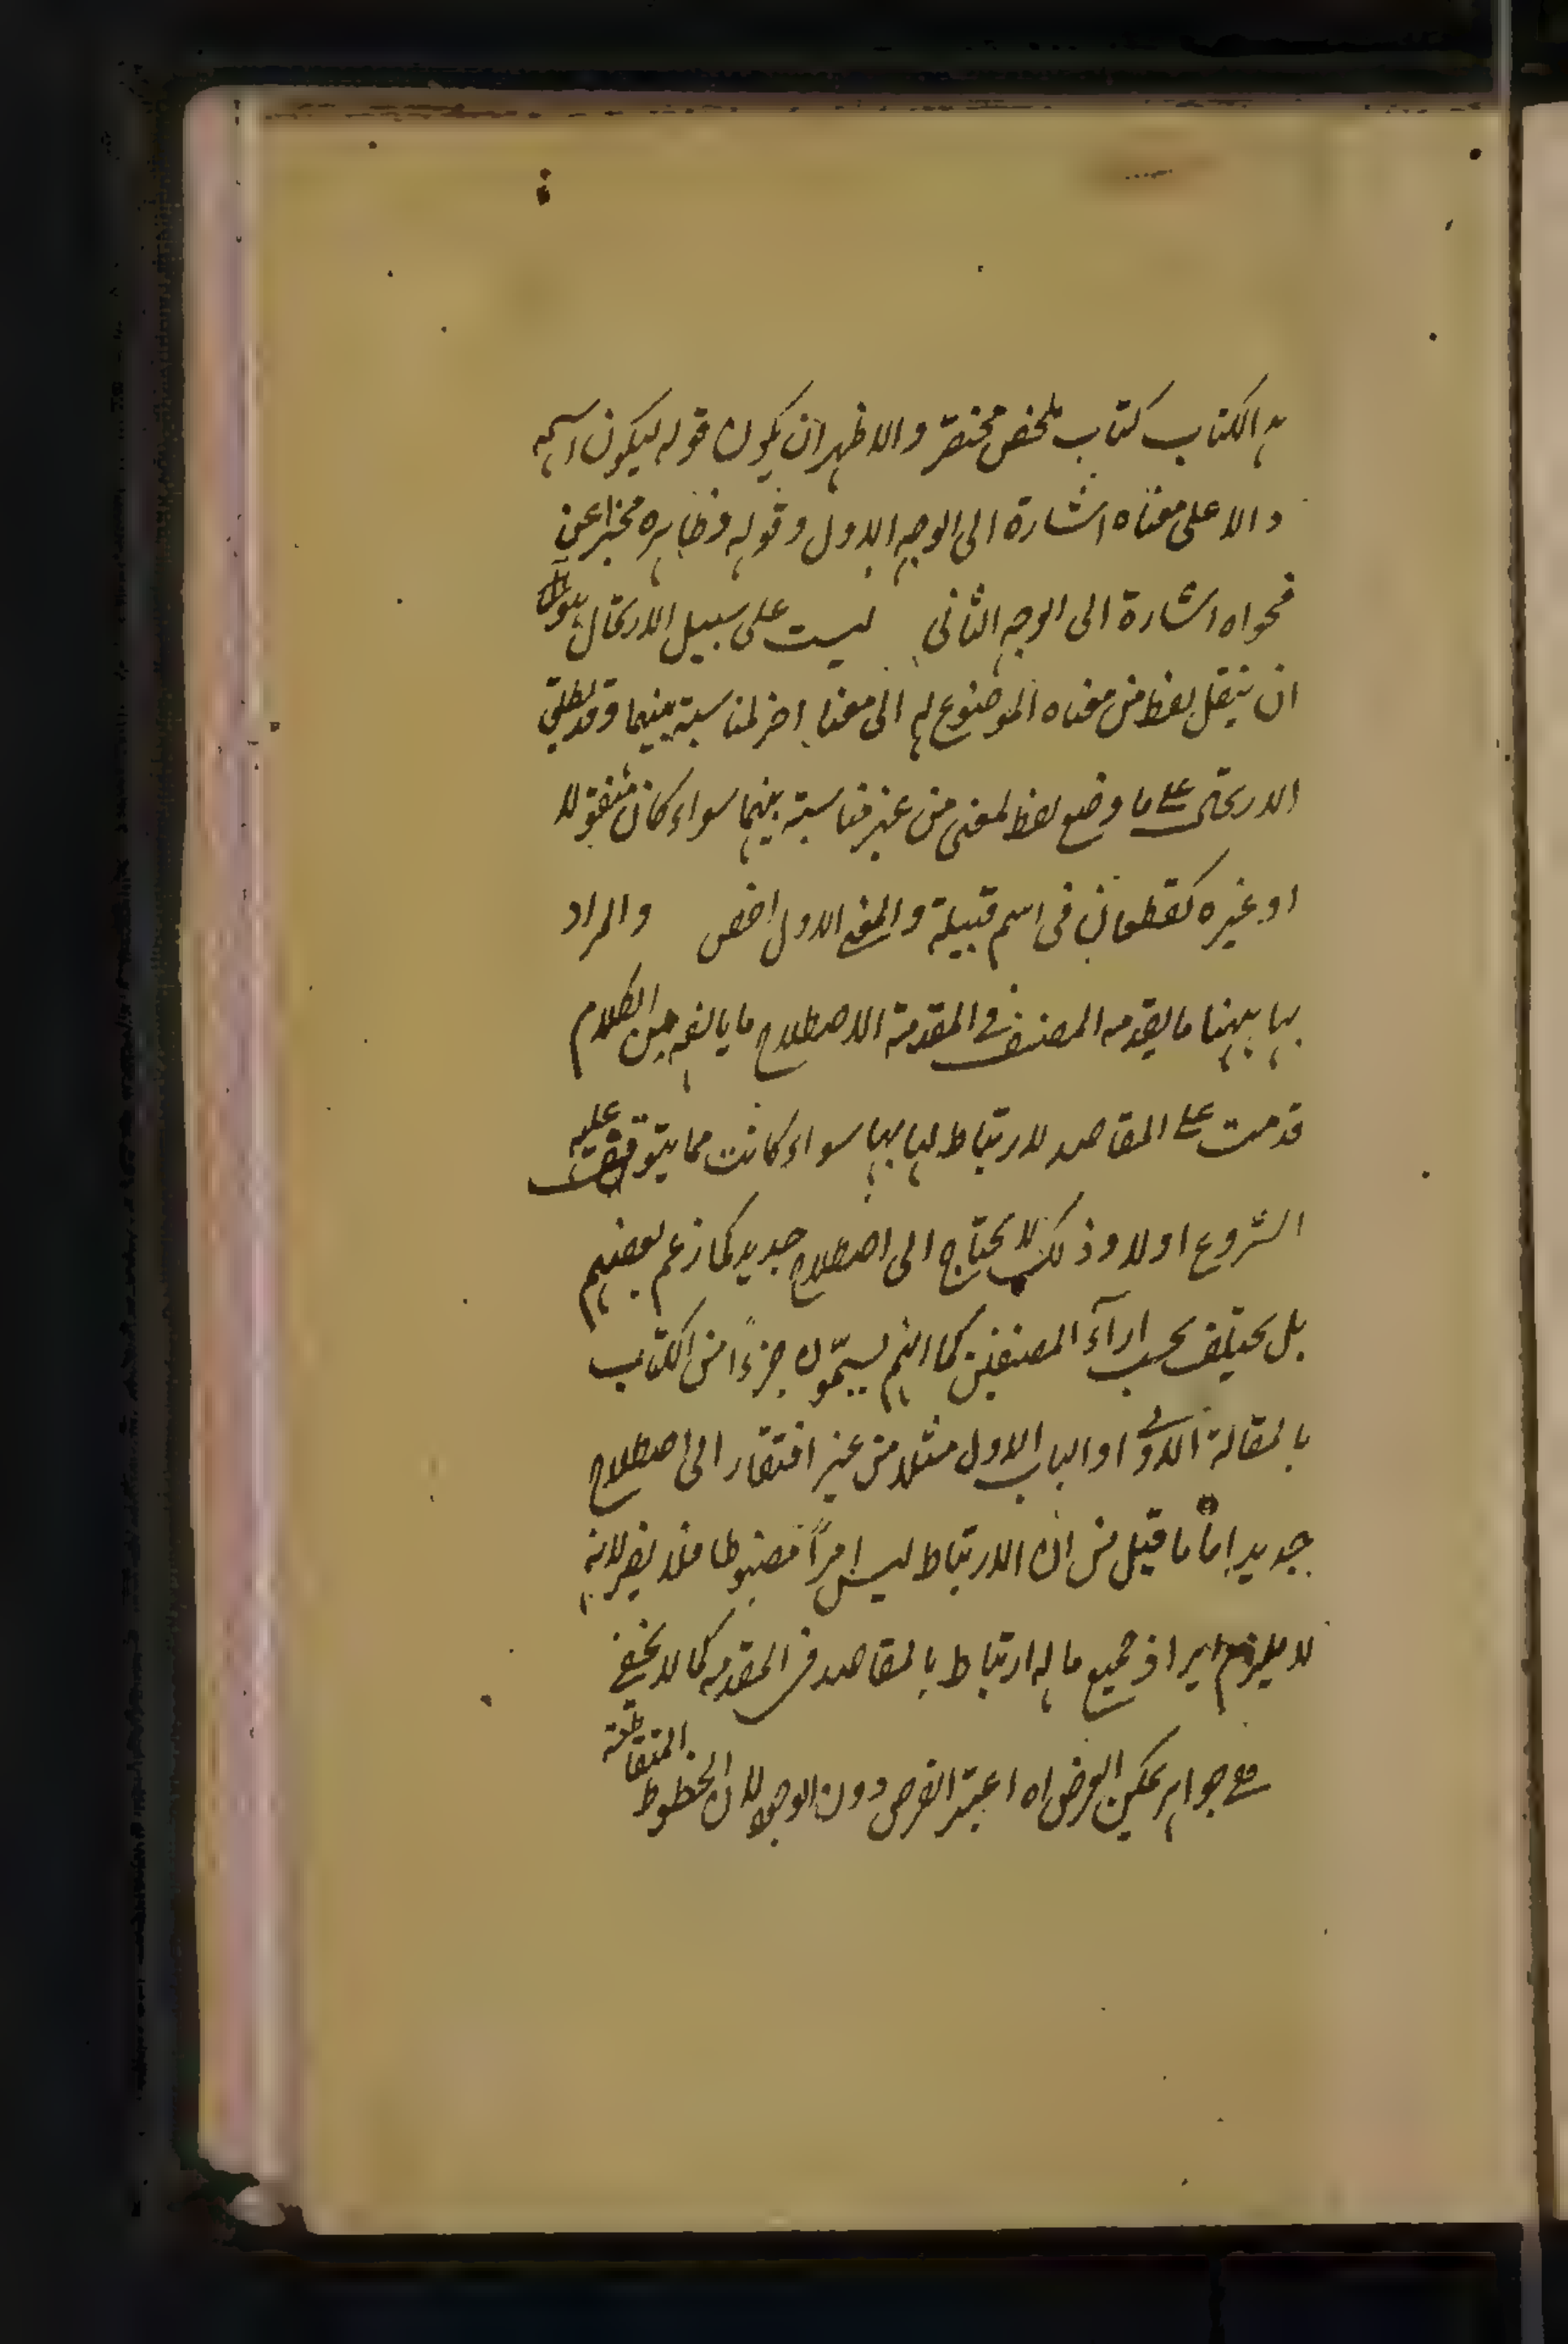 هذا الكتاب كتاب ملخص مختصر والاظهر ان يكون قوله ليكون اسمه
دالا على معناه اشارة الى الوجه الاول وقوله وظاهره مخبرا عن
فحواه اشارة الى الوجه الثاني ليست على سبيل الارتجال هو
ان ينقل لفظ من معناه الموضوع له الى معنا اخر لمناسبة بينهما وقد يطلق
الارتجال على ما وضع لفظ لمعنى من غير مناسبة بينهما سواء كان منقولا
او غيره كقطعان في اسم قبيلة والمعنى الاول اخص والمراد
بها ههنا ما يقدمه المصنف في المقدمة الاصطلاح ما يالفه من الكلام
قدمت على المقاصد لارتباط لها بها سواء كانت مما يتوقف عليه
الشروع اولا وذلك لا يحتاج الى اصطلاح جديد كما زعم بعضهم
بل يختلف بحسب ارآء المصنفين كما انهم يسمّون جزءًا من الكتاب
بالمقالة الاولى او الباب الاول مثلا من غير افتقار الى اصطلاح
جديد اما ما قيل من ان الارتباط ليس امرًا مضبوطا فلا يضر لانه
لا يلزم ايراد جميع ما له ارتباط بالمقاصد في المقدمه كما لا يخفى
مع جواهر يمكن الفرض اه اعتبر الفرض دون الوجود لان الخطوط المتقاطعة